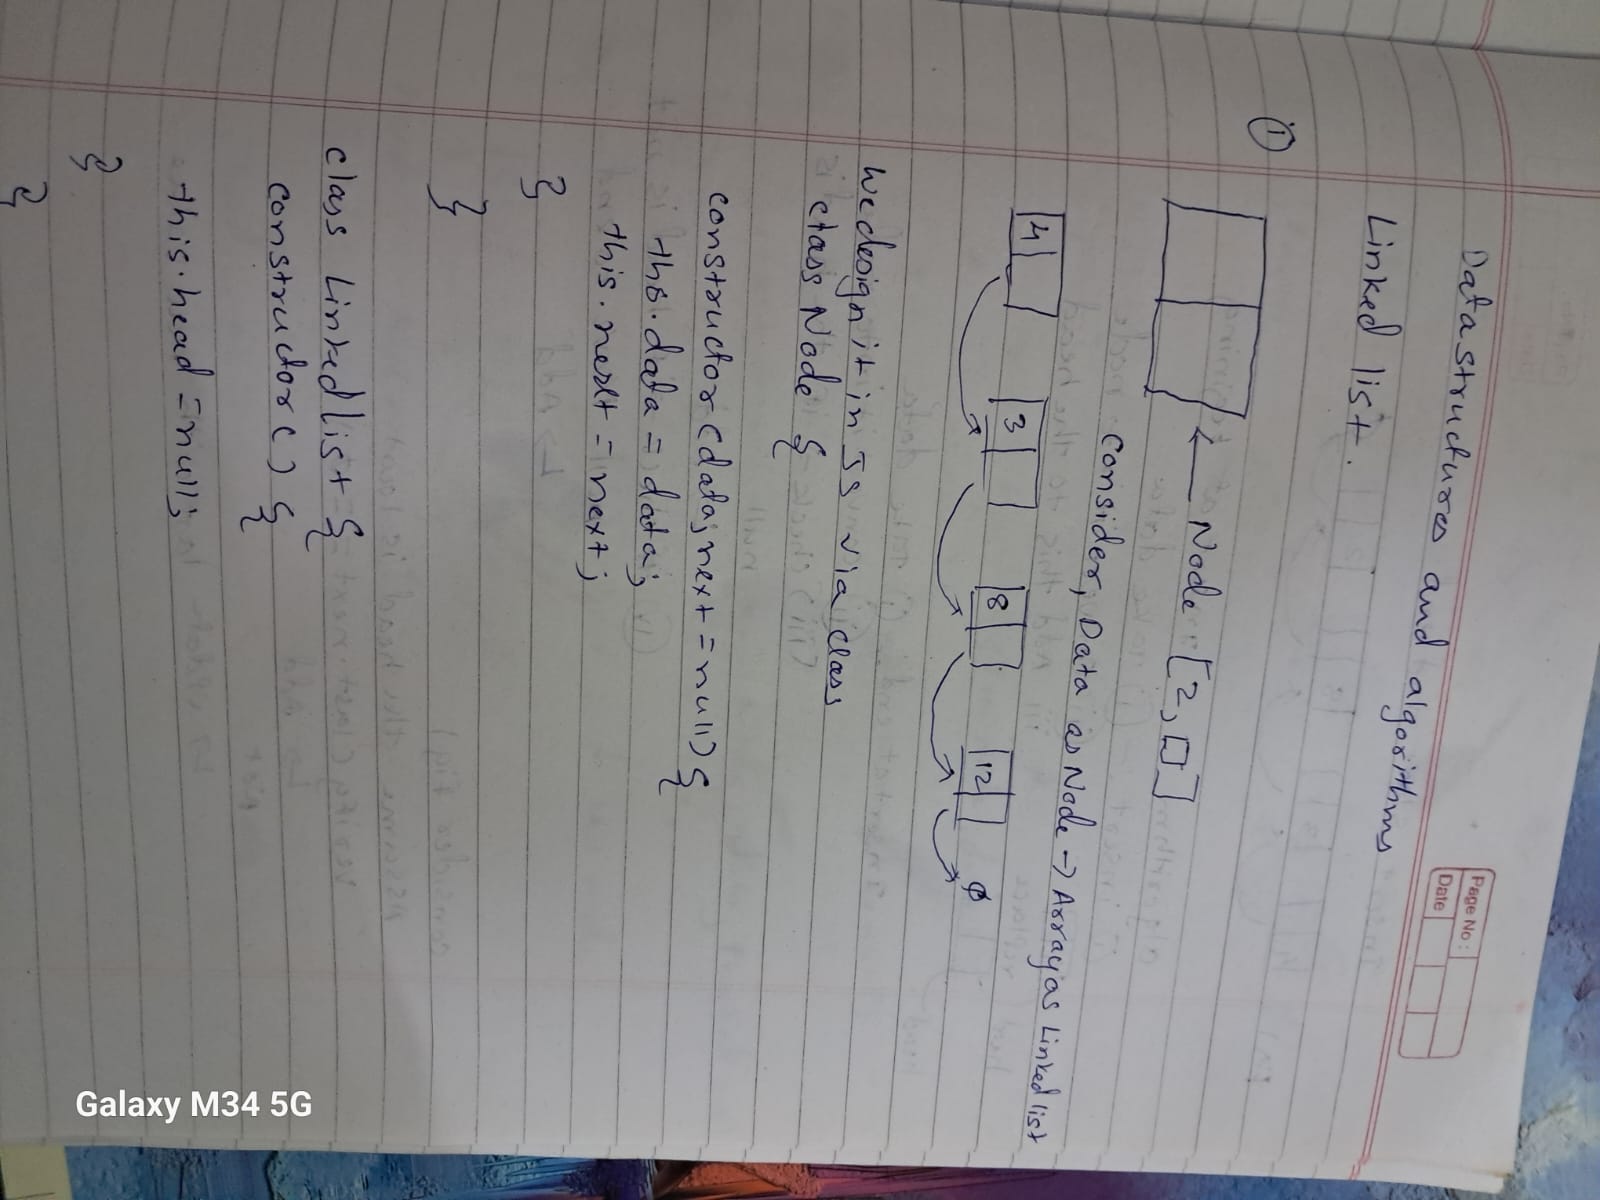 Page No :
Date
Datastructures and algorithms
Linked list.
①
← Node [2, □]
Consider, Data as Node → Array as Linked list
4 3 8 12 ∅
We design it in JS via class
class Node {
constructor (data, next = null) {
this.data = data;
this.next = next;
}
}
class Linked list {
constructor () {
this.head = null;
}
}
Galaxy M34 5G